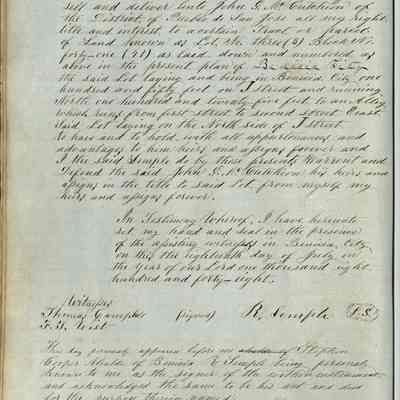 sell and deliver unto John G. McCutcheon of
the District of Pueblo de San Jose all my right,
title and interest to a certain Tract or parcel
of Land known as Lot No. Three (3) Block No.
forty-one (41) as laid down and numbered as
above in the present plan of Benicia City
the said Lot laying and being in Benicia City one
hundred and fifty feet on I street and running
North one hundred and twenty five feet to an Alley
which runs from first street to second street East
Said Lot laying on the North side of I Street.
To have and to hold, with the appurtenances and
advantages to him heirs and assigns forever and
I the said Semple do by these presents Warrant and
Defend the said John G. McCutcheon his heirs and
assigns in the title to said Lot, from myself my
heirs and assigns forever.
In Testimony Whereof, I have hereunto
set my hand and seal in the presence
of the assisting witnesses in Benicia City
on this the eighteenth day of July in
the Year of our Lord one thousand eight
hundred and forty-eight.
Witness
Thomas Campbell (signed) R. Semple L.S.
F. G. West
This day personally appeared before me Stephen
Cooper Alcalde of Benicia R Semple being personally
known to me as the signer of the written instrument
and acknowledged the same to be his act and deed
for the purpose therein named